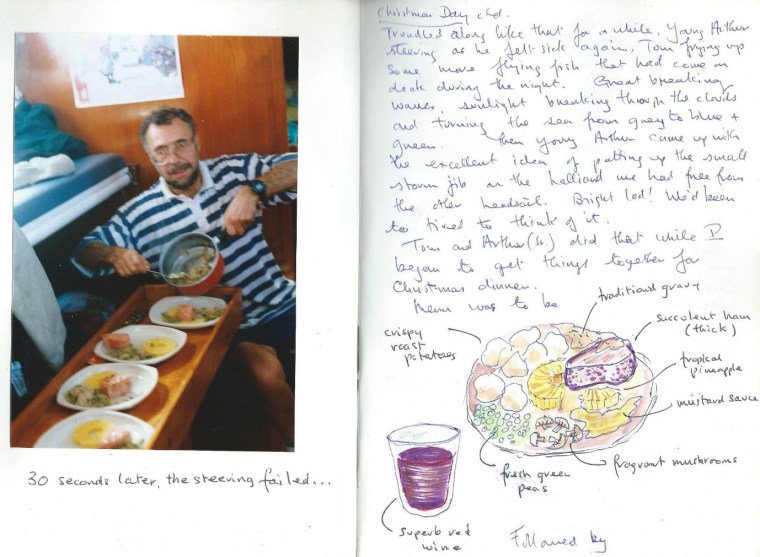 30 seconds later, the steering failed...
Christmas Day ctd.
Trundled along like that for a while, Young Arthur
steering as he felt sick again, Tom frying up
some more flying fish that had come on
deck during the night. Great breaking
waves, sunlight breaking through the clouds
and turning the sea from grey to blue +
green. Then young Arthur came up with
the excellent idea of putting up the small
storm jib on the halliard we had free from
the other headsail. Bright lad! We'd been
too tired to think of it.
Tom and Arthur (Sr.) did that while I
began to get things together for
Christmas dinner.
Menu was to be
traditional gravy
succulent ham
(thick)
crispy
roast
potatoes
tropical
pineapple
mustard sauce
fragrant mushrooms
fresh green
peas
superb red
wine
Followed by